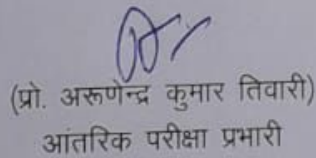 (प्रो. अरूणेन्द्र कुमार तिवारी)
आंतरिक परीक्षा प्रभारी